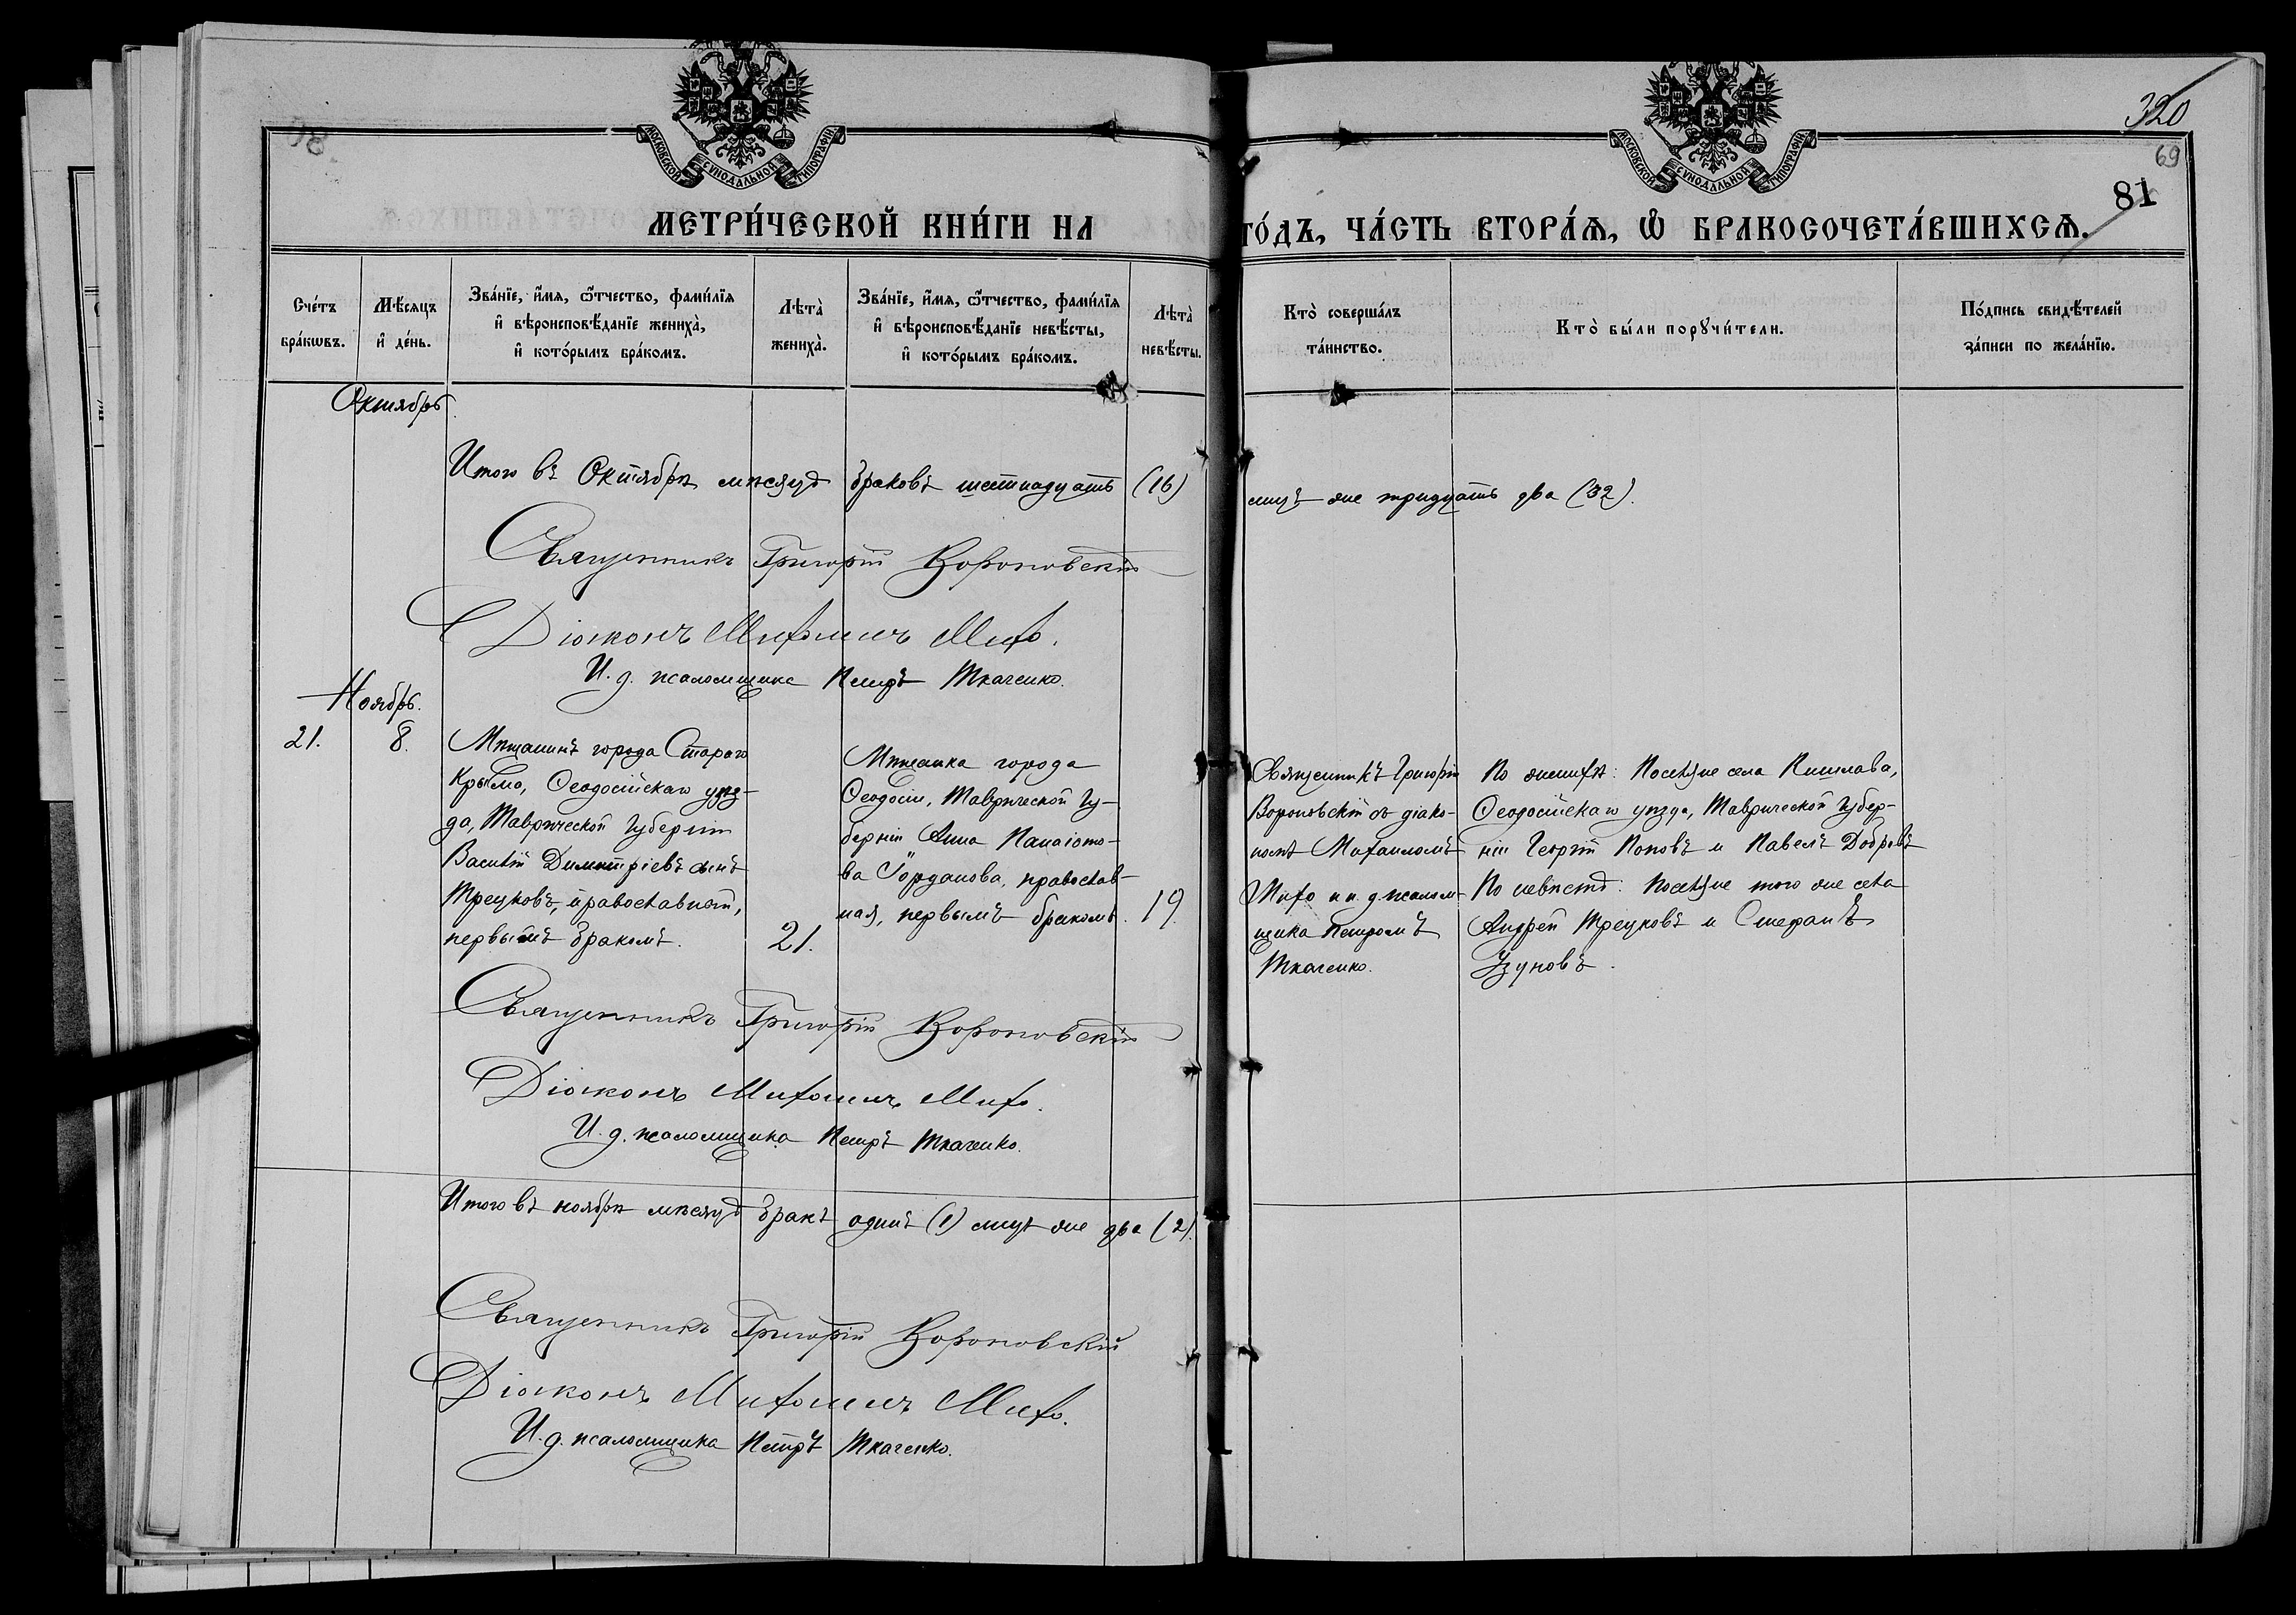 МОСКОВСКОЙ СѴНОДАЛЬНОЙ ТИПОГРАФІИ
МОСКОВСКОЙ СѴНОДАЛЬНОЙ ТИПОГРАФІИ
320
69
81
МЕТРИ́ЧЕСКОЙ КНИ́ГИ НА
ГО́ДЪ, ЧА́СТЬ ВТОРА́Ѧ, Ѡ҆ БРАКОСОЧЕТА́ВШИХСѦ.
Сче́тъ
бра́кѡвъ.
Мѣ́сѧцъ
и҆ де́нь.
Зва́нїе, и҆́мѧ, ѻ҆́тчество, фами́лїѧ
и҆ вѣроисповѣ́данїе жениха̀,
и҆ кото́рымъ бра́комъ.
Лѣта̀
жениха̀.
Зва́нїе, и҆́мѧ, ѻ҆́тчество, фами́лїѧ
и҆ вѣроисповѣ́данїе невѣ́сты,
и҆ кото́рымъ бра́комъ.
Лѣта̀
невѣ́сты.
Кто̀ соверша́лъ
та́инство.
Кто̀ бы́ли порꙋчи́тели.
По́дпись свидѣ́телей
за́писи по жела́нїю.
Октябрь
Итого въ Октябрѣ мѣсяцѣ браковъ шестнадцать (16)
лицъ же тридцать два (32).
Священникъ Григорій Вороновскій
Діаконъ Михаилъ Михо.
И. д. псаломщика Петръ Ткаченко.
Ноябрь.
21.
8.
Мѣщанинъ города Стараго
Крыма, Ѳеодосійскаго уѣз-
да, Таврической губерніи
Василій Димитріевъ сынъ
Трецковъ, православный,
первымъ бракомъ.
21.
Мѣщанка города
Ѳеодосіи, Таврической Гу-
берніи Анна Панаіото-
ва Іорданова, православ-
ная, первымъ бракомъ.
19.
Священникъ Григорій
Вороновскій съ діако-
номъ Михаиломъ
Михо и и. д. псалом-
щика Петромъ
Ткаченко.
По женихѣ: Поселяне села Кишлава,
Ѳеодосійскаго уѣзда, Таврической губер-
ніи Георгій Поповъ и Павелъ Добревъ
По невѣстѣ: Поселяне того же села
Андрей Трецковъ и Стефанъ
Узуновъ.
Священникъ Григорій Вороновскій
Діаконъ Михаилъ Михо.
И. д. псаломщика Петръ Ткаченко.
Итого въ ноябрѣ мѣсяцѣ бракъ одинъ (1) лицъ же два (2).
Священникъ Григорій Вороновскій
Діаконъ Михаилъ Михо.
И. д. псаломщика Петръ Ткаченко.